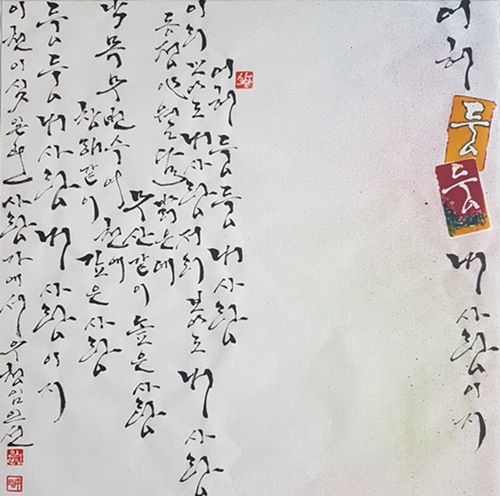 어허 둥둥 내 사랑이지
어허 둥둥 내 사랑
이리 보아도 내 사랑 저리 보아도 내 사랑
동정
무산같이 높은 사랑
목무변수여천에
창해같이 깊은 사랑
둥둥 내 사랑 내 사랑이지
이천이십 사랑가에서